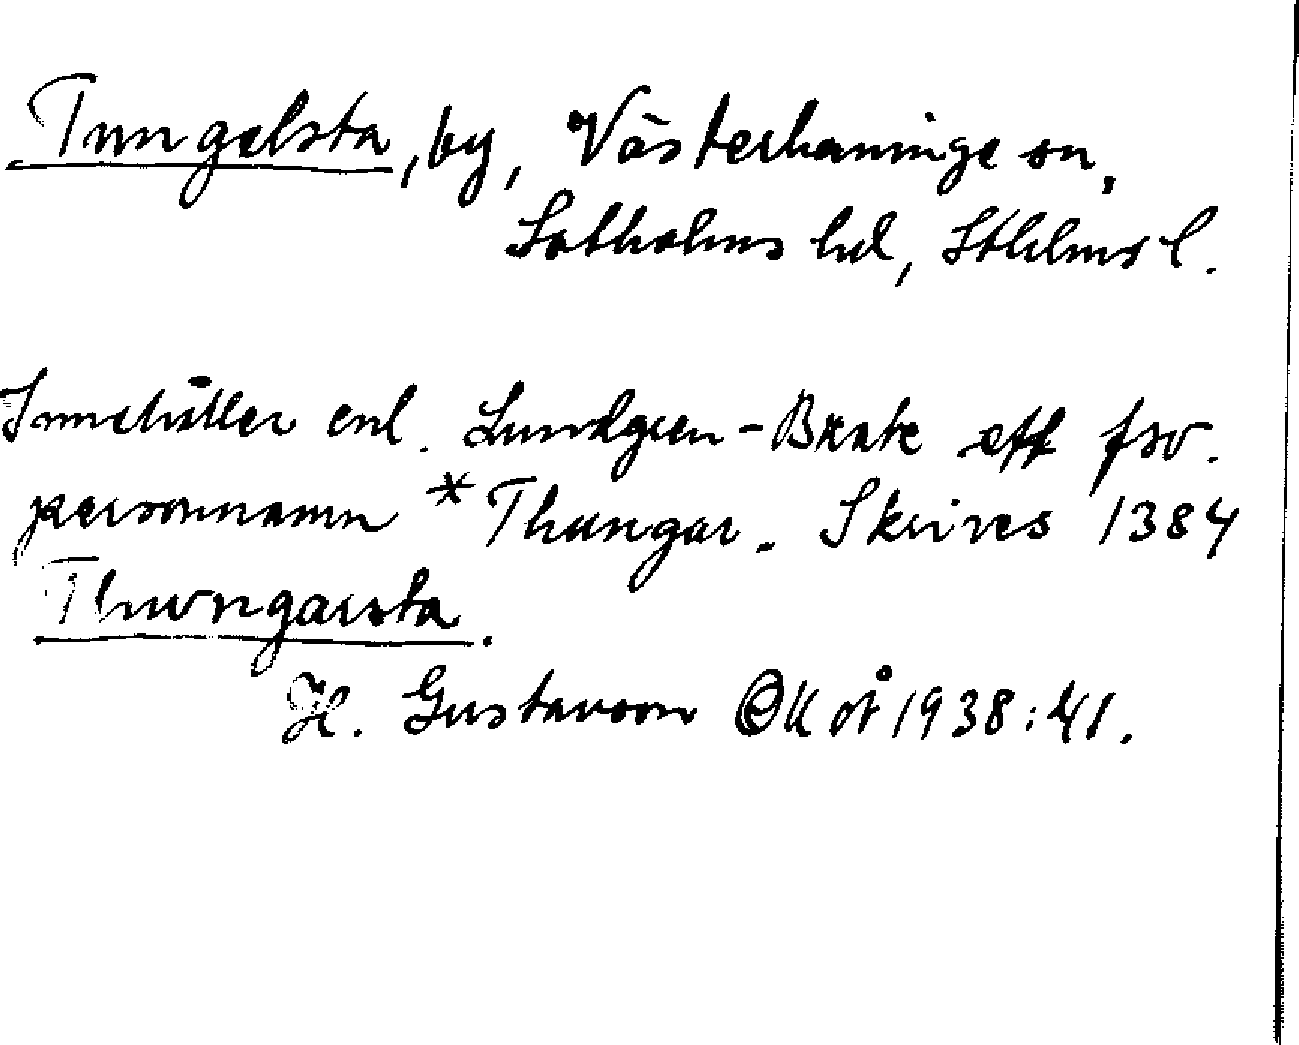 Tungelsta, by, Västerhaninge sn,
Sotholms hd, Sthlms l.
Innehåller enl. Lundgren-Brate ett fsv.
personnamn *Thungar. Skrives 1384
Thwngarsta.
H. Gustavson OK of 1938:41.